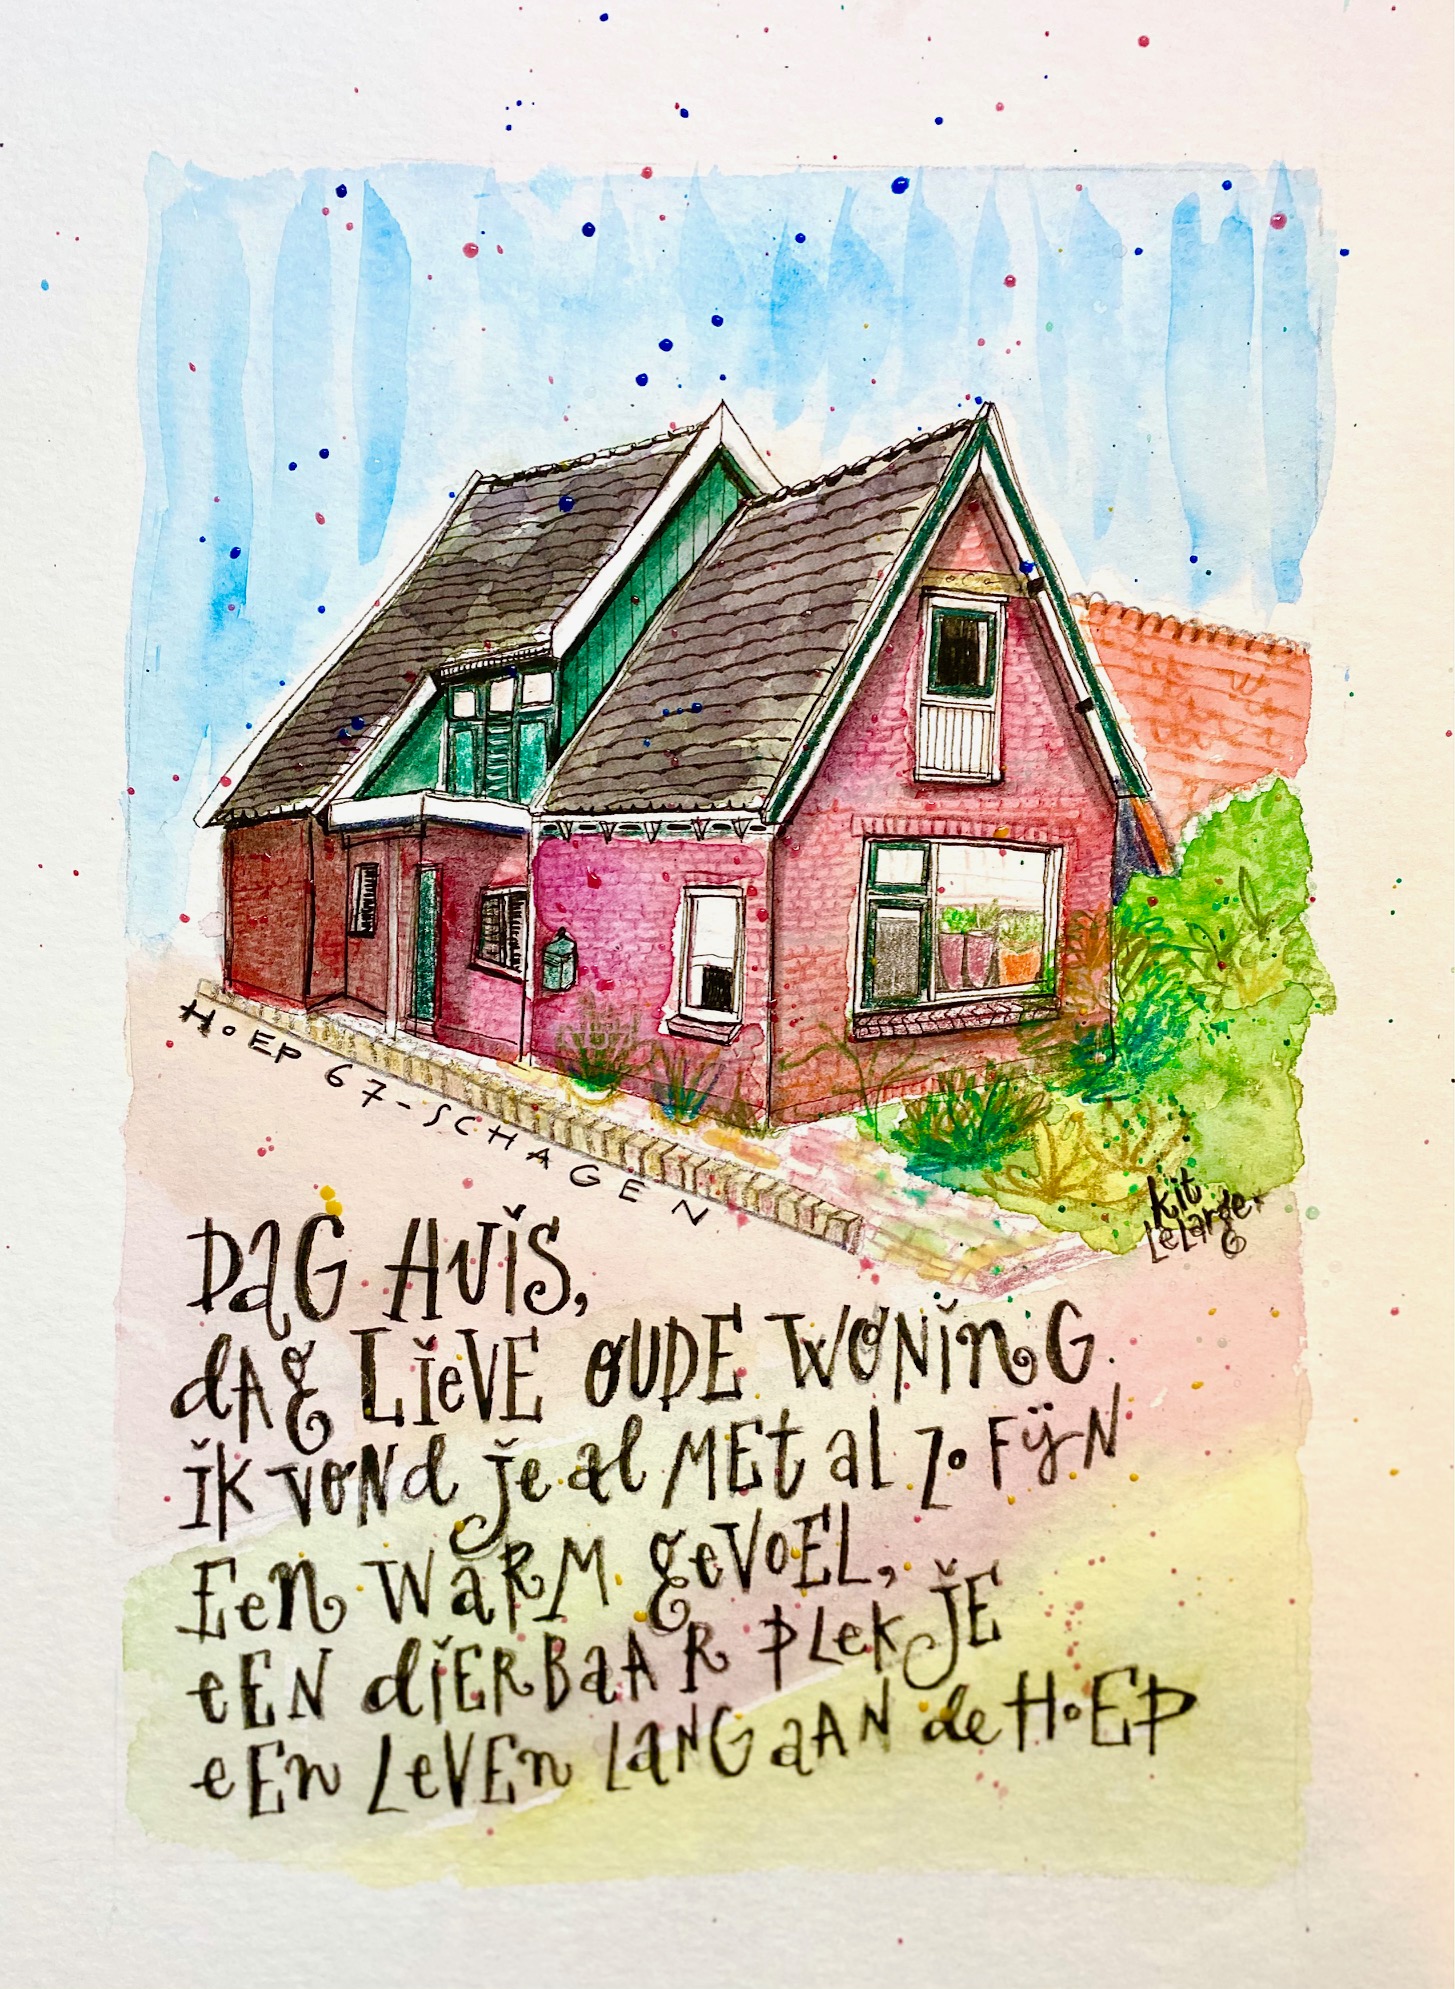 HOEP 67-SCHAGEN
kit
LeLarge
DaG HUiS,
dAg LieVE OUDE WONinG.
iK VONd je al MEt al Zo FijN
EEn WaRM geVoEL,
eEN diERBaAR PLekJE
eEn LeVEn LaNG aAN de HoEP